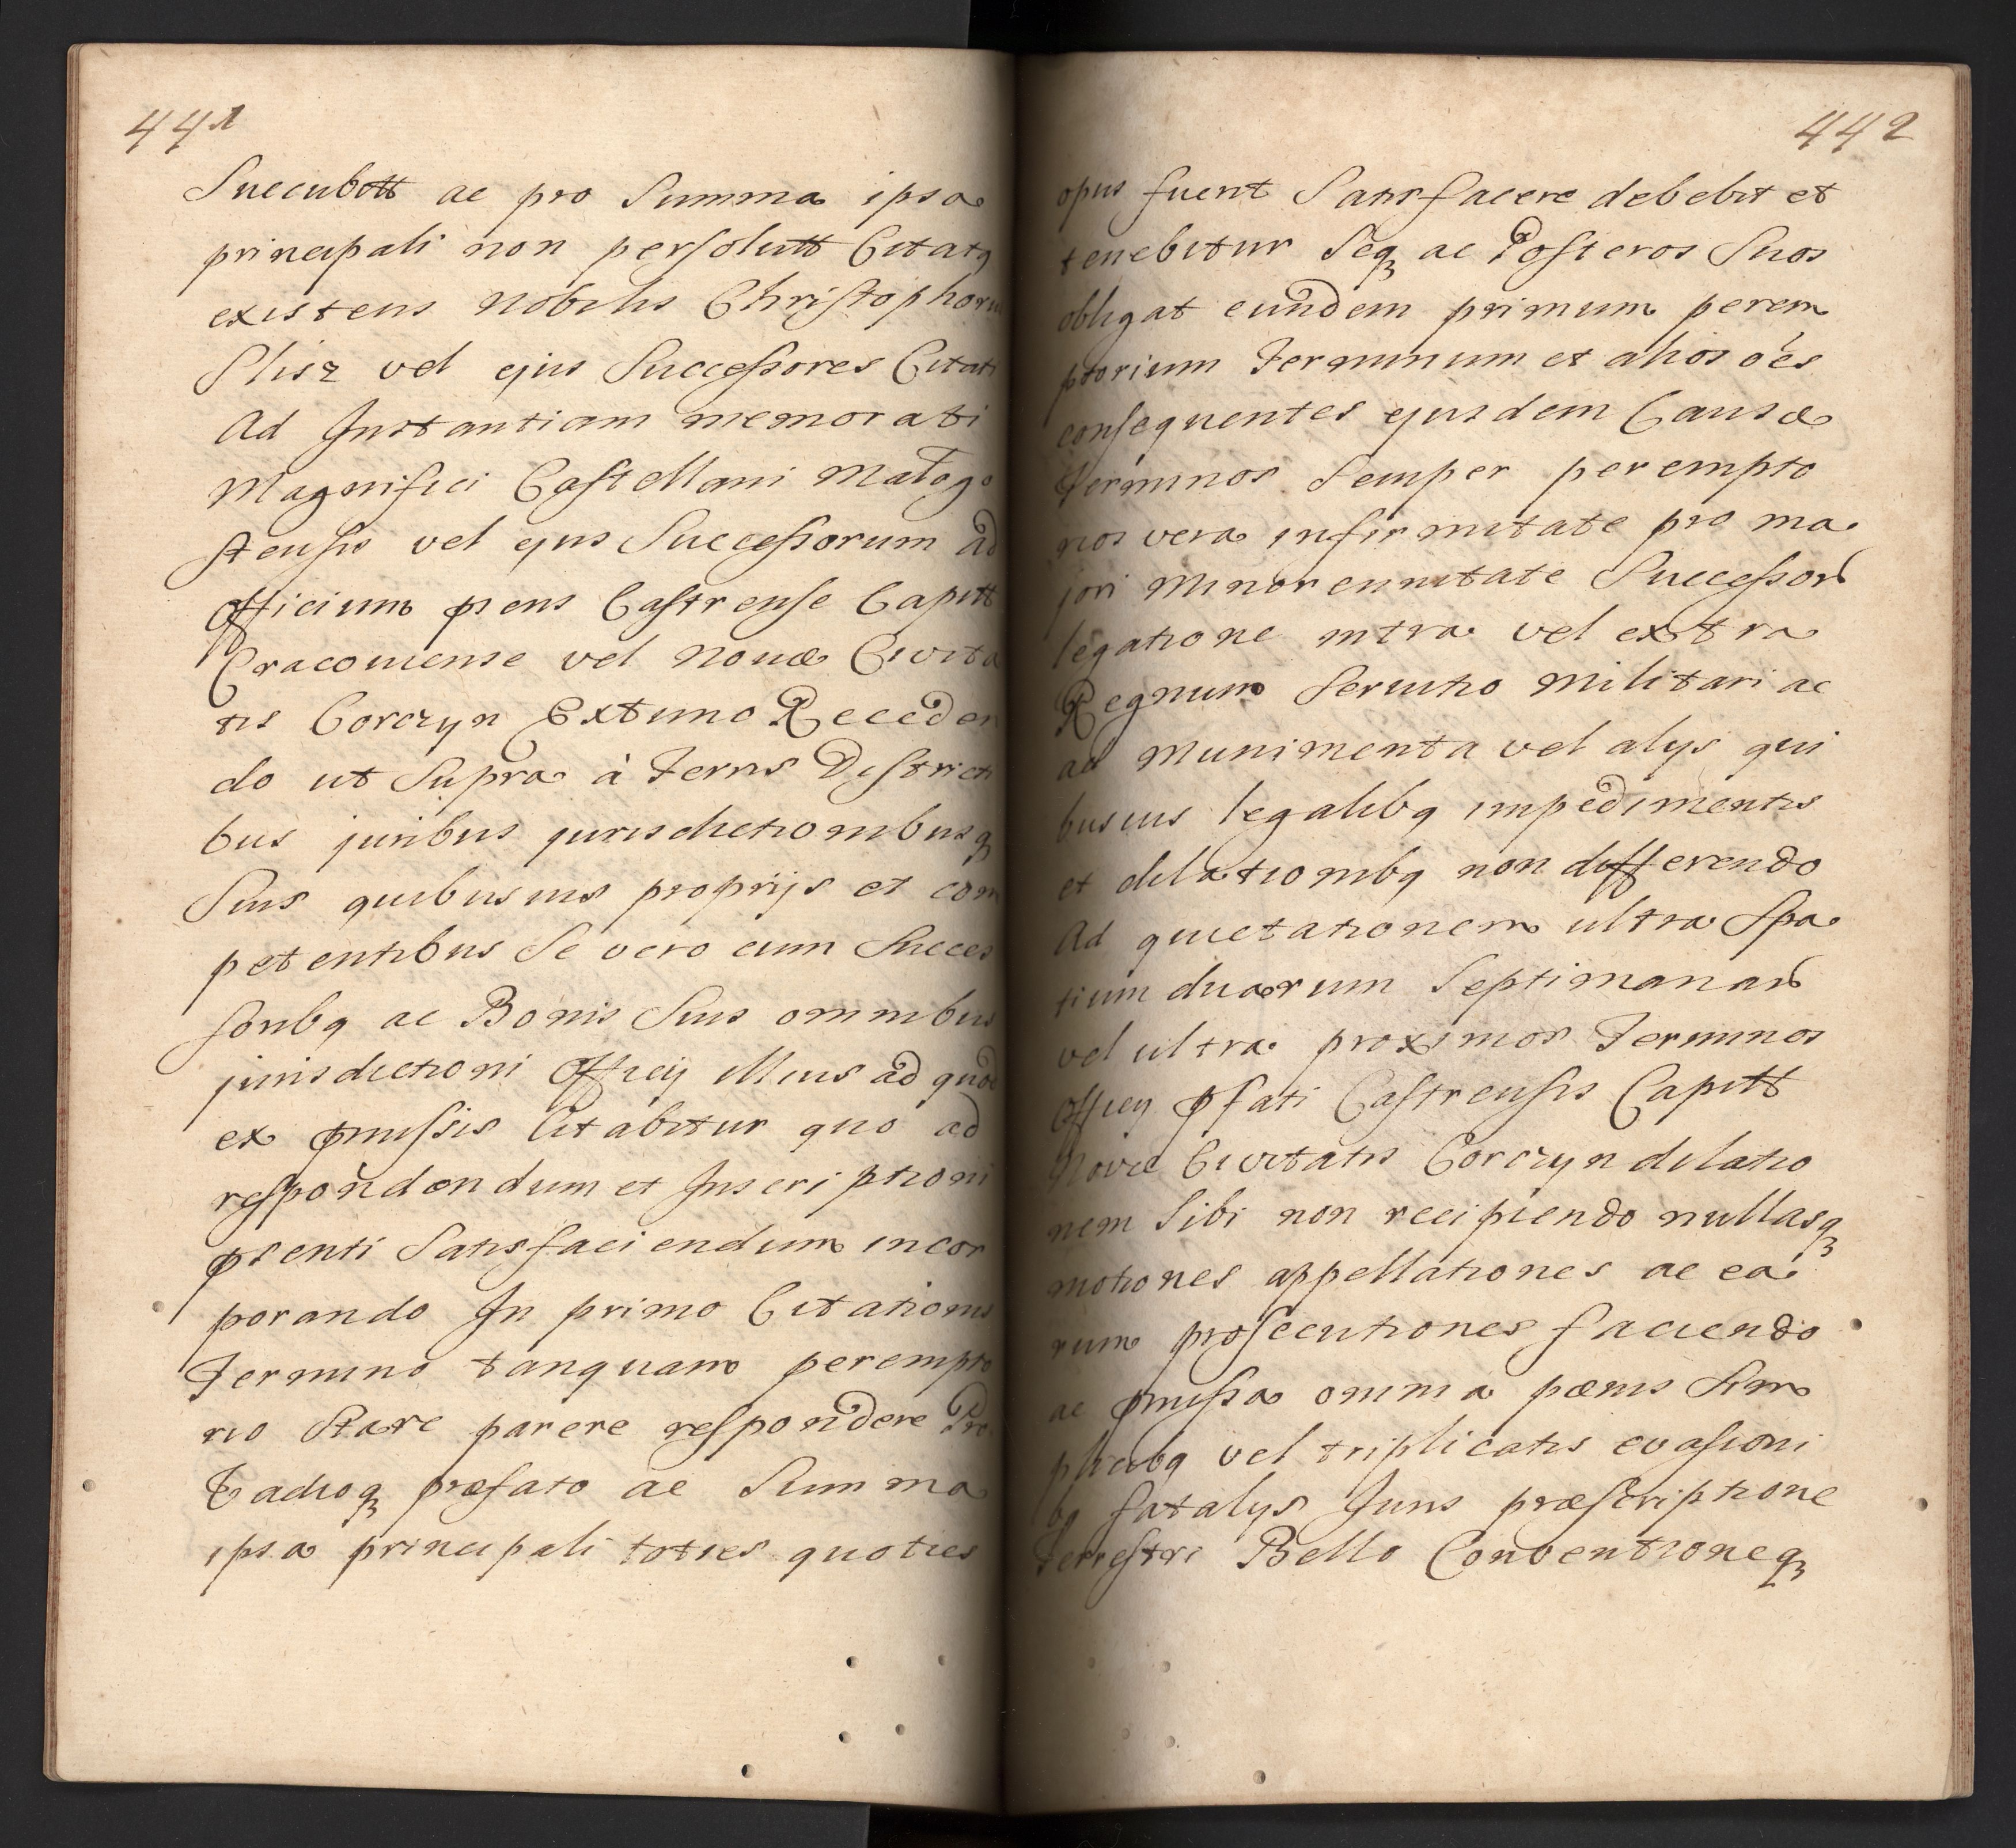 441
Succubott ac pro Summa ipsa
principali non persolutt Citatq
existens Nobilis Christophorus
Slisz vel ejus Successores Citati
Ad Instantiam memorati
Magnifici Castellani Malogo
stensis vel ejus Successorum ad
Officium pñens Castrense Capitt
Cracoviense vel Novæ Civita
tis Corczyn Extunc Receden
do ut Supra à Terris Districti
bus juribus jurisdictionibusq
Suis quibusvis proprijs et com
petentibus Se vero cum Succes
soribq ac Bonis Suis omnibus
jurisdictioni Officij illius ad quod
ex pmissis Citabitur quo ad
respondendum et Inscriptioni
psenti Satisfaciendum incor
porando In primo Citationis
Termino tanquam perempto
rio Stare parere respondere Pro
Vadioq præfato ac Summa
ipsa principali toties quoties
442
opus fuerit Satisfacere debebit et
tenebitur Seq ac Posteros Suos
obligat eundem primum perem
ptorium Terminum et alios oes
consequentes ejusdem Causæ
Terminos Semper perempto
rios vera infirmitate pro ma
jori Minorennitate Successor
legatione intra vel extra
Regnum Servitio Militari ac
ad Munimenta vel alys qui
busvis legalibq impedimentis
et dilationibq non differendo
Ad quietationem ultra Spa
tium duarum Septimanar
vel ultra proximos Terminos
Officij pfati Castrensis Capitt
Novæ Civitatis Corczyn dilatio
nem Sibi non recipiendo nullasq
motiones appellationes ac ea
rum prosecutiones faciendo
ac pmissa omnia pænis Sim
plicibq vel triplicatis evasioni
bq fatalys Juris præscriptione
Terrestri Bello Conventioneq